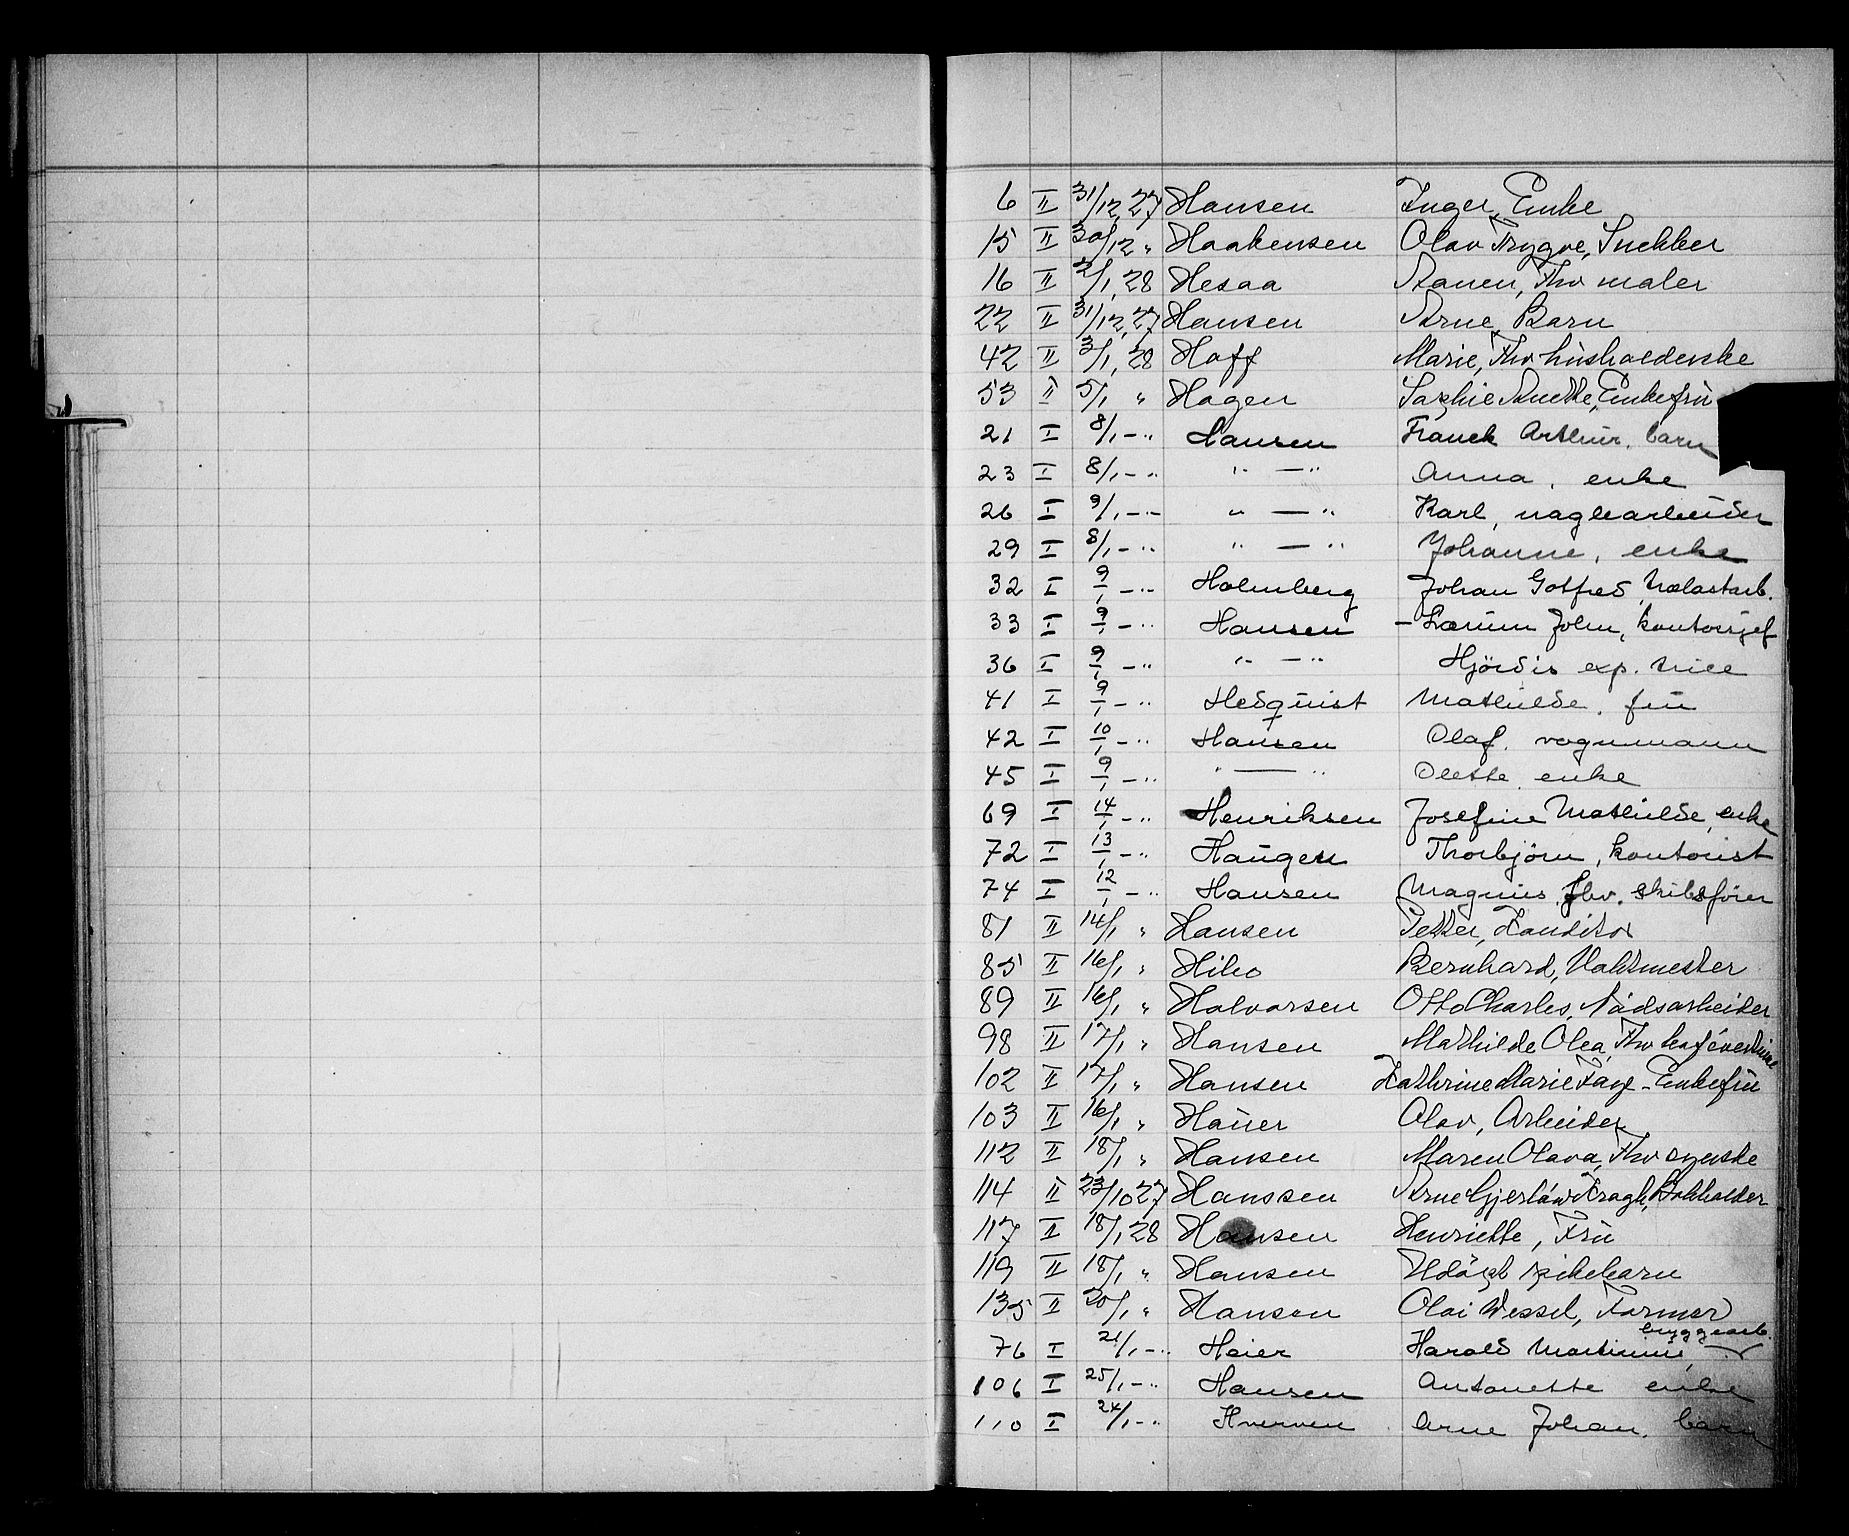 6 II 31/12, 27 Hansen Inger, Enke
15 II 30/12 " Haakensen Olav Trygve, Snekker
16 II 2/1, 28 Hesaa Aanen, Fhv maler
22 II 31/12, 27 Hansen Arne, Barn
42 II 3/1, 28 Hoff Marie, Fhv husholderske
53 II 5/1 " Hagen Sophie Anette, Enkefru
21 I 8/1 - " Hansen Franck Arthur. barn
23 I 8/1 - " " — " Anna, enke
26 I 9/1 - " " — " Karl, naglearbeider
29 I 8/1 - " " — " Johanne, enke
32 I 9/1 - " Holmberg Johan Gotfred
33 I 9/1 - " Hansen - Lærum John, kontorsjef
36 I 9/1 - " " — " Hjördis exp. trice
41 I 9/1 - " Hedquist Mathilde. fru
42 I 10/1 - " Hansen Olaf. vognmann
45 I 9/1 - " " — " Olette enke
69 I 14/1 - " Henriksen Josefine Mathilde, enke
72 I 13/1 - " Haugen Thorbjörn, kontorist
74 I 12/1 - " Hansen Magnus. fhv. skibsförer
81 II 14/1 " Hansen Petter, Konditor
85 II 16/1 " Hilio Bernhard, Vaktmester
89 II 16/1 " Halvorsen Otto Charles, Nödsarbeider
98 II 17/1 " Hansen Mathilde Olea, Fhv kafévertinne
102 II 17/1 " Hansen Kathrine Marie Faye - Enkefru
103 II 16/1 " Hauer Olav, Arbeider
112 II 18/1 " Hansen Maren Olava, Fhv syerske
114 II 23/10 27 Hanssen Arne Gjerløw Kragh, Bokholder
117 II 18/1, 28 Hansen Henriette, Fru
119 II 18/1 " Hansen Udöpt pikebarn
135 II 20/1 " Hansen Olai Wessel, Former
76 I 21/1 - " Heier Harald Martinius, bryggearb.
106 I 25/1 - " Hansen Antonette enke
110 I 24/1 - " Hverven Arne Johan. barn